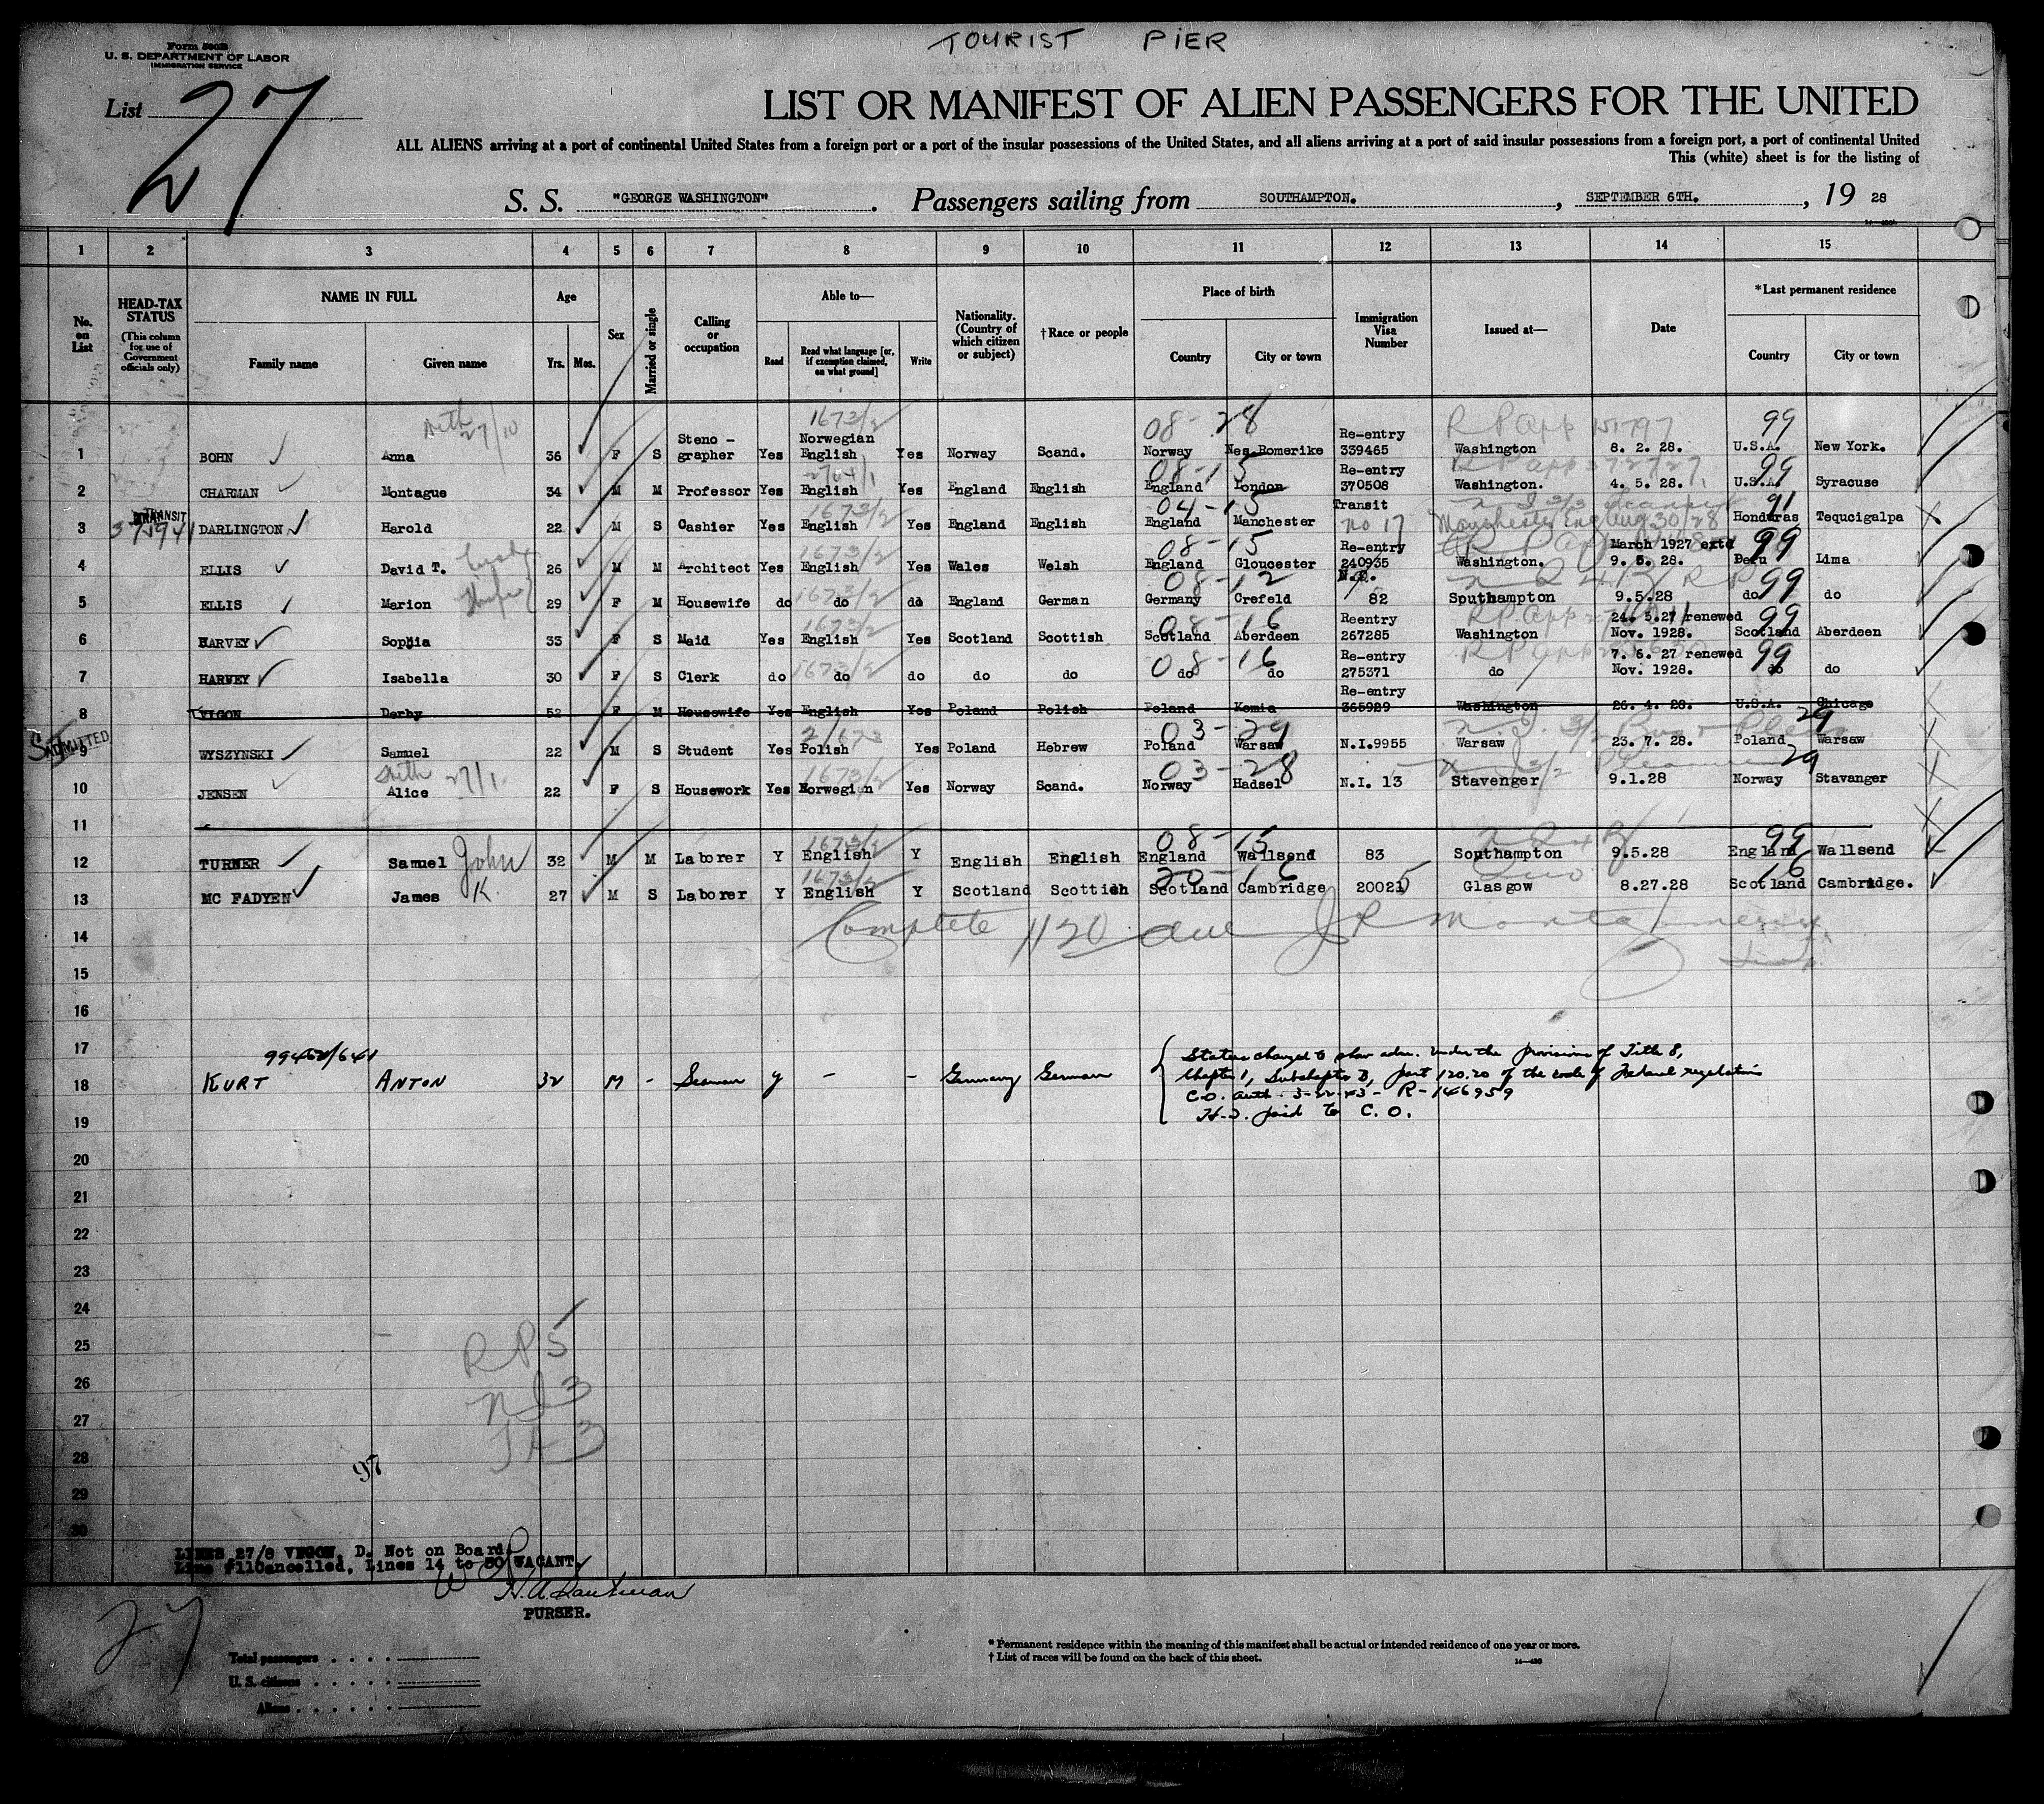 TOURIST PIER
Form 500B
U. S. DEPARTMENT OF LABOR
IMMIGRATION SERVICE
List 27
LIST OR MANIFEST OF ALIEN PASSENGERS FOR THE UNITED
ALL ALIENS arriving at a port of continental United States from a foreign port or a port of the insular possessions of the United States, and all aliens arriving at a port of said insular possessions from a foreign port, a port of continental United
This (white) sheet is for the listing of
S. S. "GEORGE WASHINGTON". Passengers sailing from SOUTHAMPTON. , SEPTEMBER 6TH. , 19 28
1 2 3 4 5 6 7 8 9 10 11 12 13 14 15
No. on List
HEAD-TAX STATUS (This column for use of Government officials only)
NAME IN FULL
Family name Given name
Age
Yrs. Mos.
Sex
Married or single
Calling or occupation
Able to—
Read Read what language [or, if exemption claimed, on what ground] Write
Nationality. (Country of which citizen or subject)
†Race or people
Place of birth
Country City or town
Immigration Visa Number
Issued at—
Date
*Last permanent residence
Country City or town
27/10 1673/2 08-28 RP App 151797 99
1 BOHN Anna 36 F S Steno-grapher Yes Norwegian English Yes Norway Scand. Norway Nes Romerike Re-entry 339465 Washington 8. 2. 28. U.S.A. New York.
08-15 99
2 CHARMAN Montague 34 M M Professor Yes English Yes England English England London Re-entry 370508 Washington. 4. 5. 28. U.S.A. Syracuse
TRANSIT 1673/2 04-15 91
3 DARLINGTON Harold 22 M S Cashier Yes English Yes England English England Manchester Transit no 17 Manchester Eng Aug 30/28 Honduras Tequcigalpa
1673/2 08-15 99
4 ELLIS David T. 26 M M Architect Yes English Yes Wales Welsh England Gloucester Re-entry 240935 Washington. March 1927 extd 9. 5. 28. Peru Lima
1673/2 08-12 99
5 ELLIS Marion 29 F M Housewife do do do England German Germany Crefeld N.Q. 82 Southampton 9.5.28 do do
1673/2 08-16 99
6 HARVEY Sophia 33 F S Maid Yes English Yes Scotland Scottish Scotland Aberdeen Reentry 267285 Washington 24. 5.27 renewed Nov. 1928. Scotland Aberdeen
1673/2 08-16 99
7 HARVEY Isabella 30 F S Clerk do do do do do do do Re-entry 275371 do 7. 6. 27 renewed Nov. 1928. do do
8 VIGON Derby 52 F M Housewife Yes English Yes Poland Polish Poland Komia Re-entry 365929 Washington 26. 4. 28. U.S.A. Chicago
ADMITTED 2/673 03-29 29
9 WYSZYNSKI Samuel 22 M S Student Yes Polish Yes Poland Hebrew Poland Warsaw N.I.9955 Warsaw 23. 7. 28. Poland Warsaw
27/1 1673/2 03-28 29
10 JENSEN Alice 22 F S Housework Yes Norwegian Yes Norway Scand. Norway Hadsel N.I. 13 Stavenger 9.1.28 Norway Stavanger
11
1673/2 08-15 99
12 TURNER Samuel John 32 M M Laborer Y English Y English English England Wallsend 83 Southampton 9.5.28 England Wallsend
1673/2 20-16 16
13 MC FADYEN James K. 27 M S Laborer Y English Y Scotland Scottish Scotland Cambridge 20025 Glasgow 8.27.28 Scotland Cambridge.
14 Complete 1120 J R Montgomery
15
Insp.
16
17
18 KURT ANTON 32 M - Seaman y - - Germany German
Status changed to show adm. under the provisions of Title 8,
Chapter 1, Subchapter B, part 120.20 of the code of Federal regulations
C.O. auth. 3-22-43 - R-146959
H.T. paid to C.O.
19
20
21
22
23
24
25 RP5
26 NI3
27
28
97
29
30
LINES 27/8 VIGON, D. Not on Board.
Line #11Cancelled, Lines 14 to 30 VACANT.
PURSER.
27
Total passengers
U. S. citizens
Aliens
* Permanent residence within the meaning of this manifest shall be actual or intended residence of one year or more.
† List of races will be found on the back of this sheet.